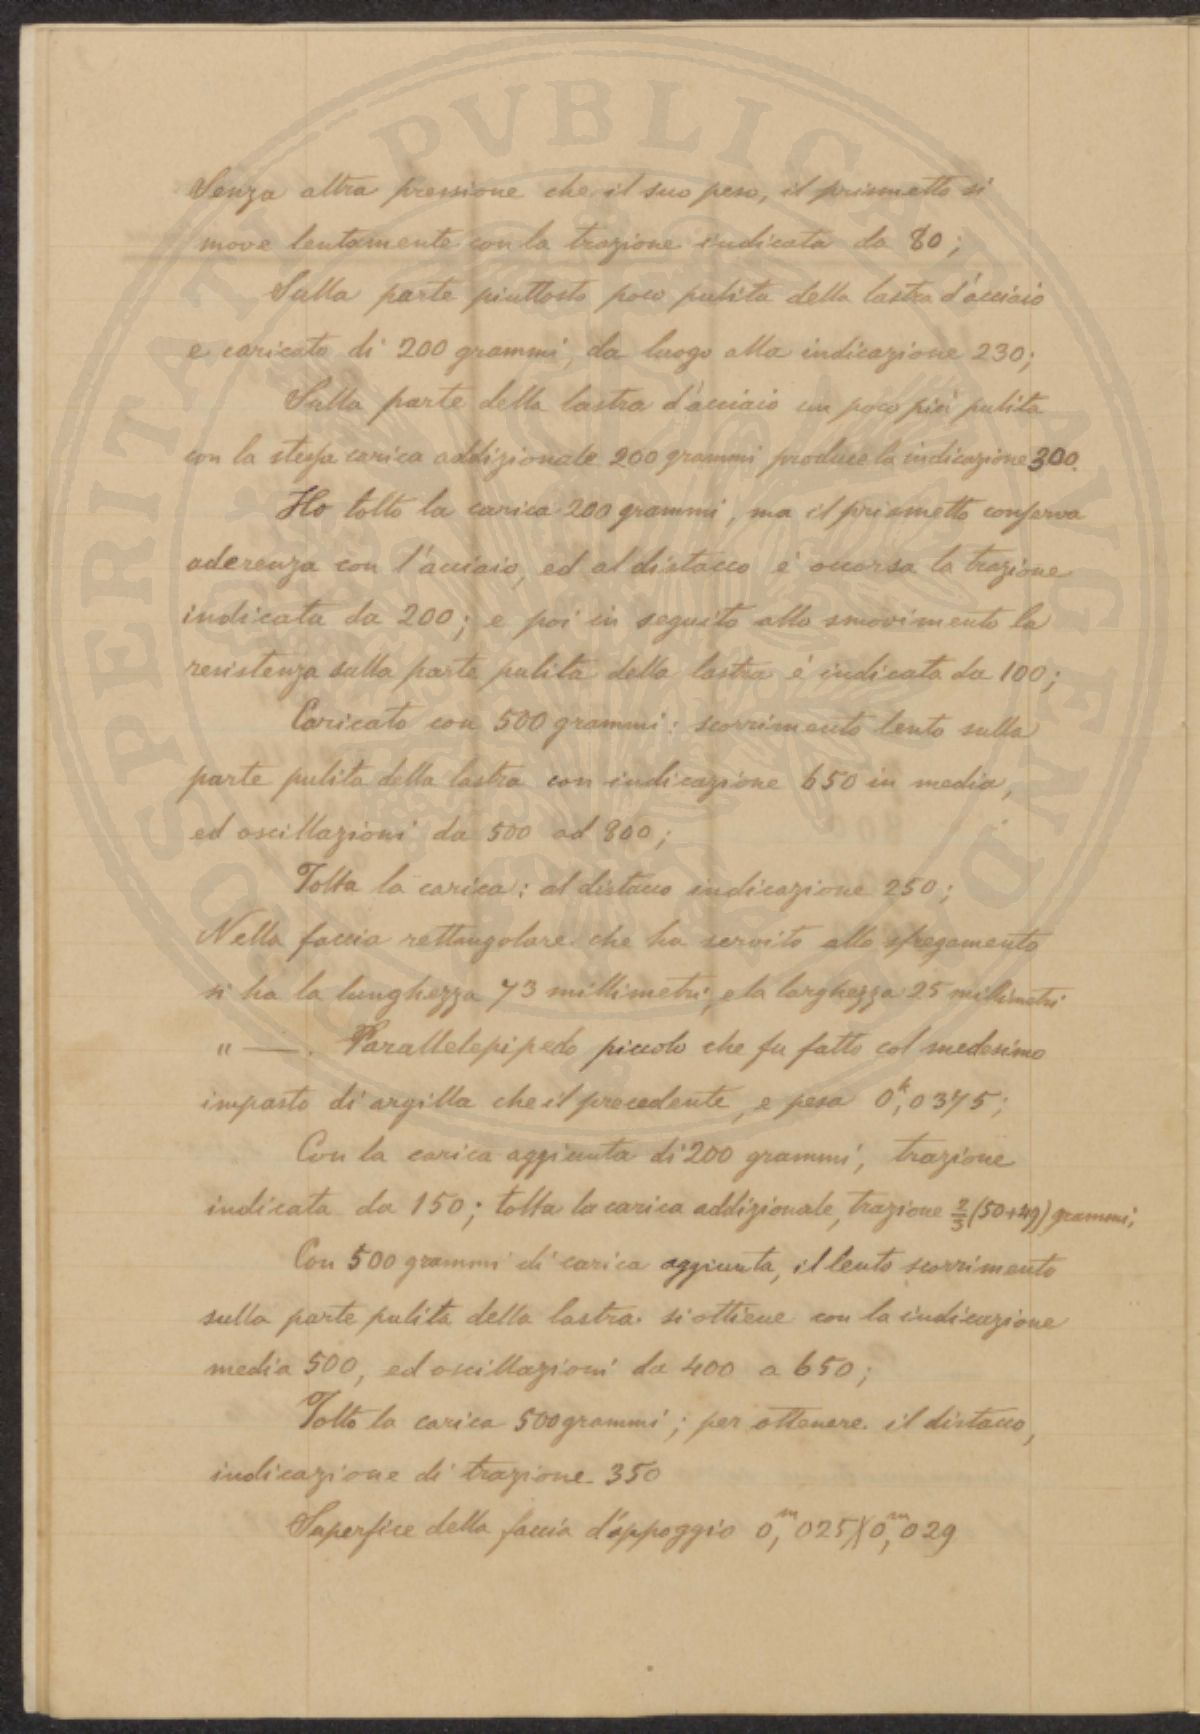 Senza altra pressione che il suo peso, il prismetto si
move lentamente con la trazione indicata da 80;
Sulla parte piuttosto poco pulita della lastra d'acciaio
e caricato di 200 grammi, da luogo alla indicazione 230;
Sulla parte della lastra d'acciaio un poco più pulita
con la stessa carica addizionale 200 grammi produce la indicazione 300.
Ho tolto la carica 200 grammi, ma il prismetto conserva
aderenza con l'acciaio, ed al distacco è occorsa la trazione
indicata da 200; e poi in seguito allo smovimento la
resistenza sulla parte pulita della lastra è indicata da 100;
Caricato con 500 grammi: scorrimento lento sulla
parte pulita della lastra con indicazione 650 in media,
ed oscillazioni da 500 ad 800;
Tolta la carica: al distacco indicazione 250;
Nella faccia rettangolare che ha servito allo sfregamento
si ha la lunghezza 73 millimetri, e la larghezza 25 millimetri
" —. Parallelepipedo piccolo che fu fatto col medesimo
impasto di argilla che il precedente, e pesa 0,ᵏ0375;
Con la carica aggiunta di 200 grammi, trazione
indicata da 150; tolta la carica addizionale, trazione 2/3 (50+49) grammi;
Con 500 grammi di carica aggiunta, il lento scorrimento
sulla parte pulita della lastra si ottiene con la indicazione
media 500, ed oscillazioni da 400 a 650;
Tolto la carica 500 grammi; per ottenere il distacco,
indicazione di trazione 350
Superfice della faccia d'appoggio 0,ᵐ025 X 0,ᵐ029
PROSPERITATI PVBLICAE AVGENDAE